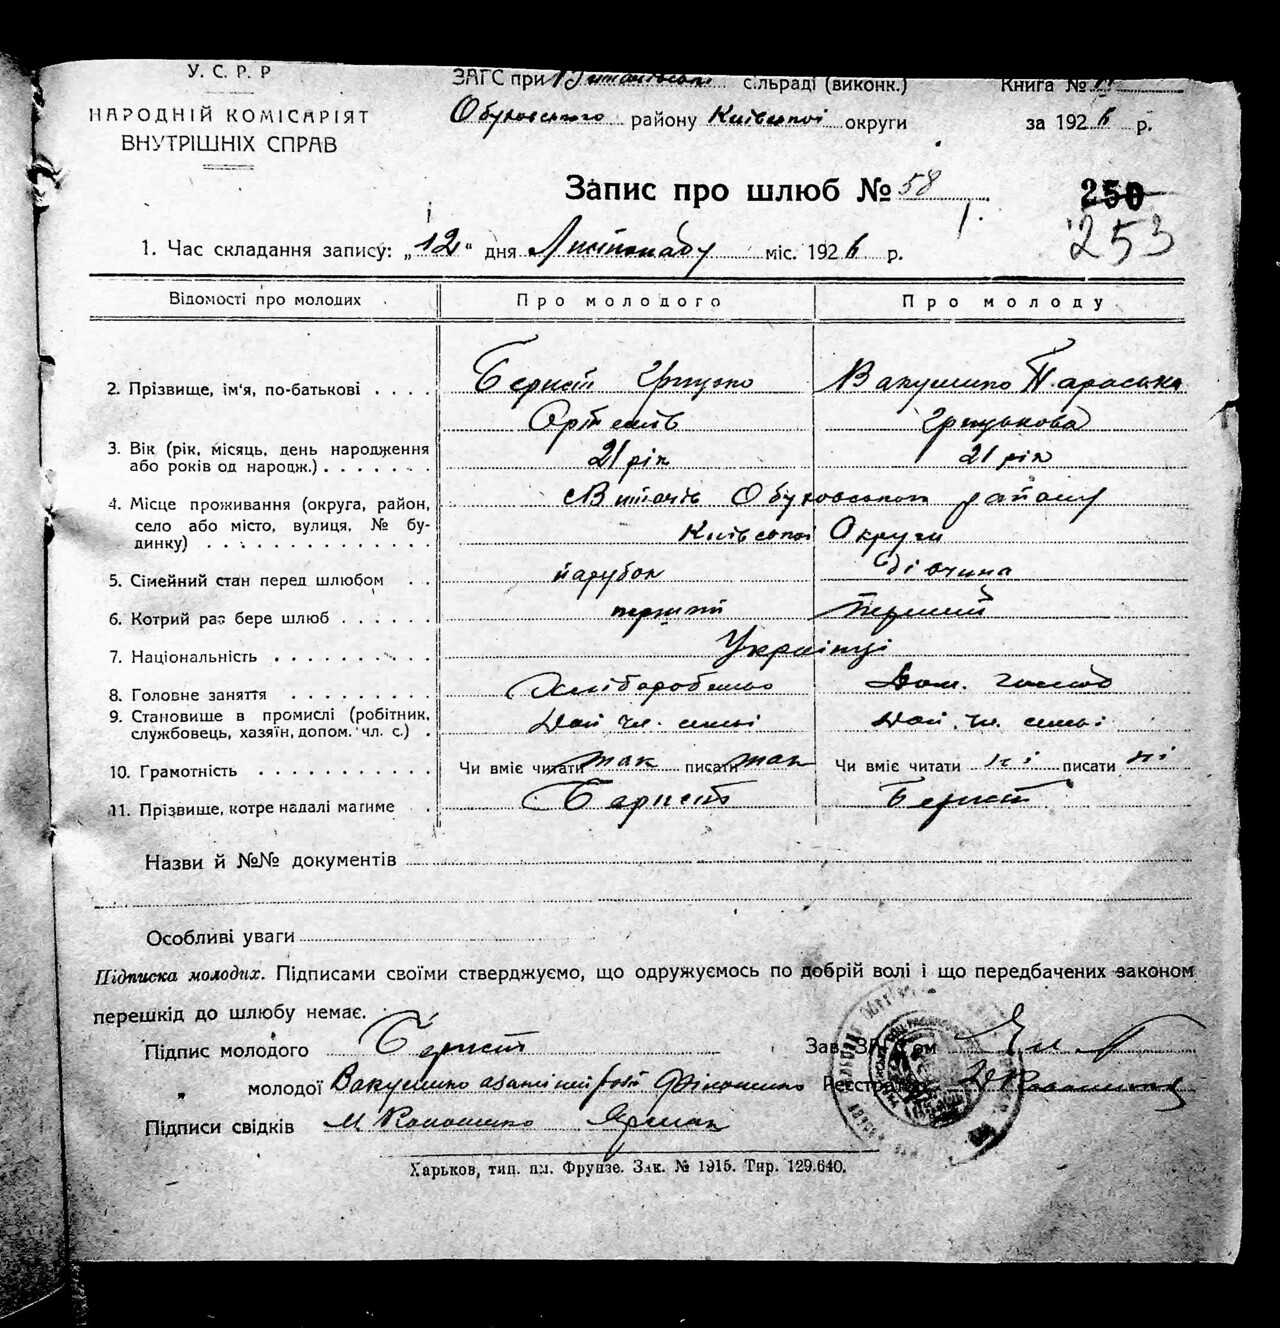 У. С. Р. Р
НАРОДНІЙ КОМІСАРІЯТ
ВНУТРІШНІХ СПРАВ
ЗАГС при сільраді (виконк.)
Обуховського району Київської округи
Книга №
за 1926 р.
Запис про шлюб № 58
250
253
1. Час складання запису: „12" дня Листопаду міс. 1926 р.
Відомості про молодих Про молодого Про молоду
2. Прізвище, ім'я, по-батькові . . . . Берест Грицько Вакуленко Параська
Артемів Грицькова
3. Вік (рік, місяць, день народження або років од народж.) . . . . . . . 21 рік 21 рік
4. Місце проживання (округа, район, село або місто, вулиця, № будинку) . . . . . . . . . . . . . с Витачів Обуховського району
Київської Округи
5. Сімейний стан перед шлюбом . . парубок дівчина
6. Котрий раз бере шлюб . . . . . . перший перший
7. Національність . . . . . . . . . Українці
8. Головне заняття . . . . . . . . . Хліборобство Дом. госпо
9. Становище в промислі (робітник, службовець, хазяїн, допом. чл. с.) . Доп чл. сем'ї Доп. чл. сем'ї
10. Грамотність . . . . . . . . . . . Чи вміє читати так писати так Чи вміє читати ні писати ні
11. Прізвище, котре надалі матиме . Берест Берест
Назви й №№ документів
Особливі уваги
Підписка молодих. Підписами своїми стверджуємо, що одружуємось по добрій волі і що передбачених законом
перешкід до шлюбу немає.
Підпис молодого Берест Зав. ЗАГСом
„ молодої Реєстратор
Підписи свідків
Харьков, тип. им. Фрунзе. Зак. № 1915. Тир. 129.640.